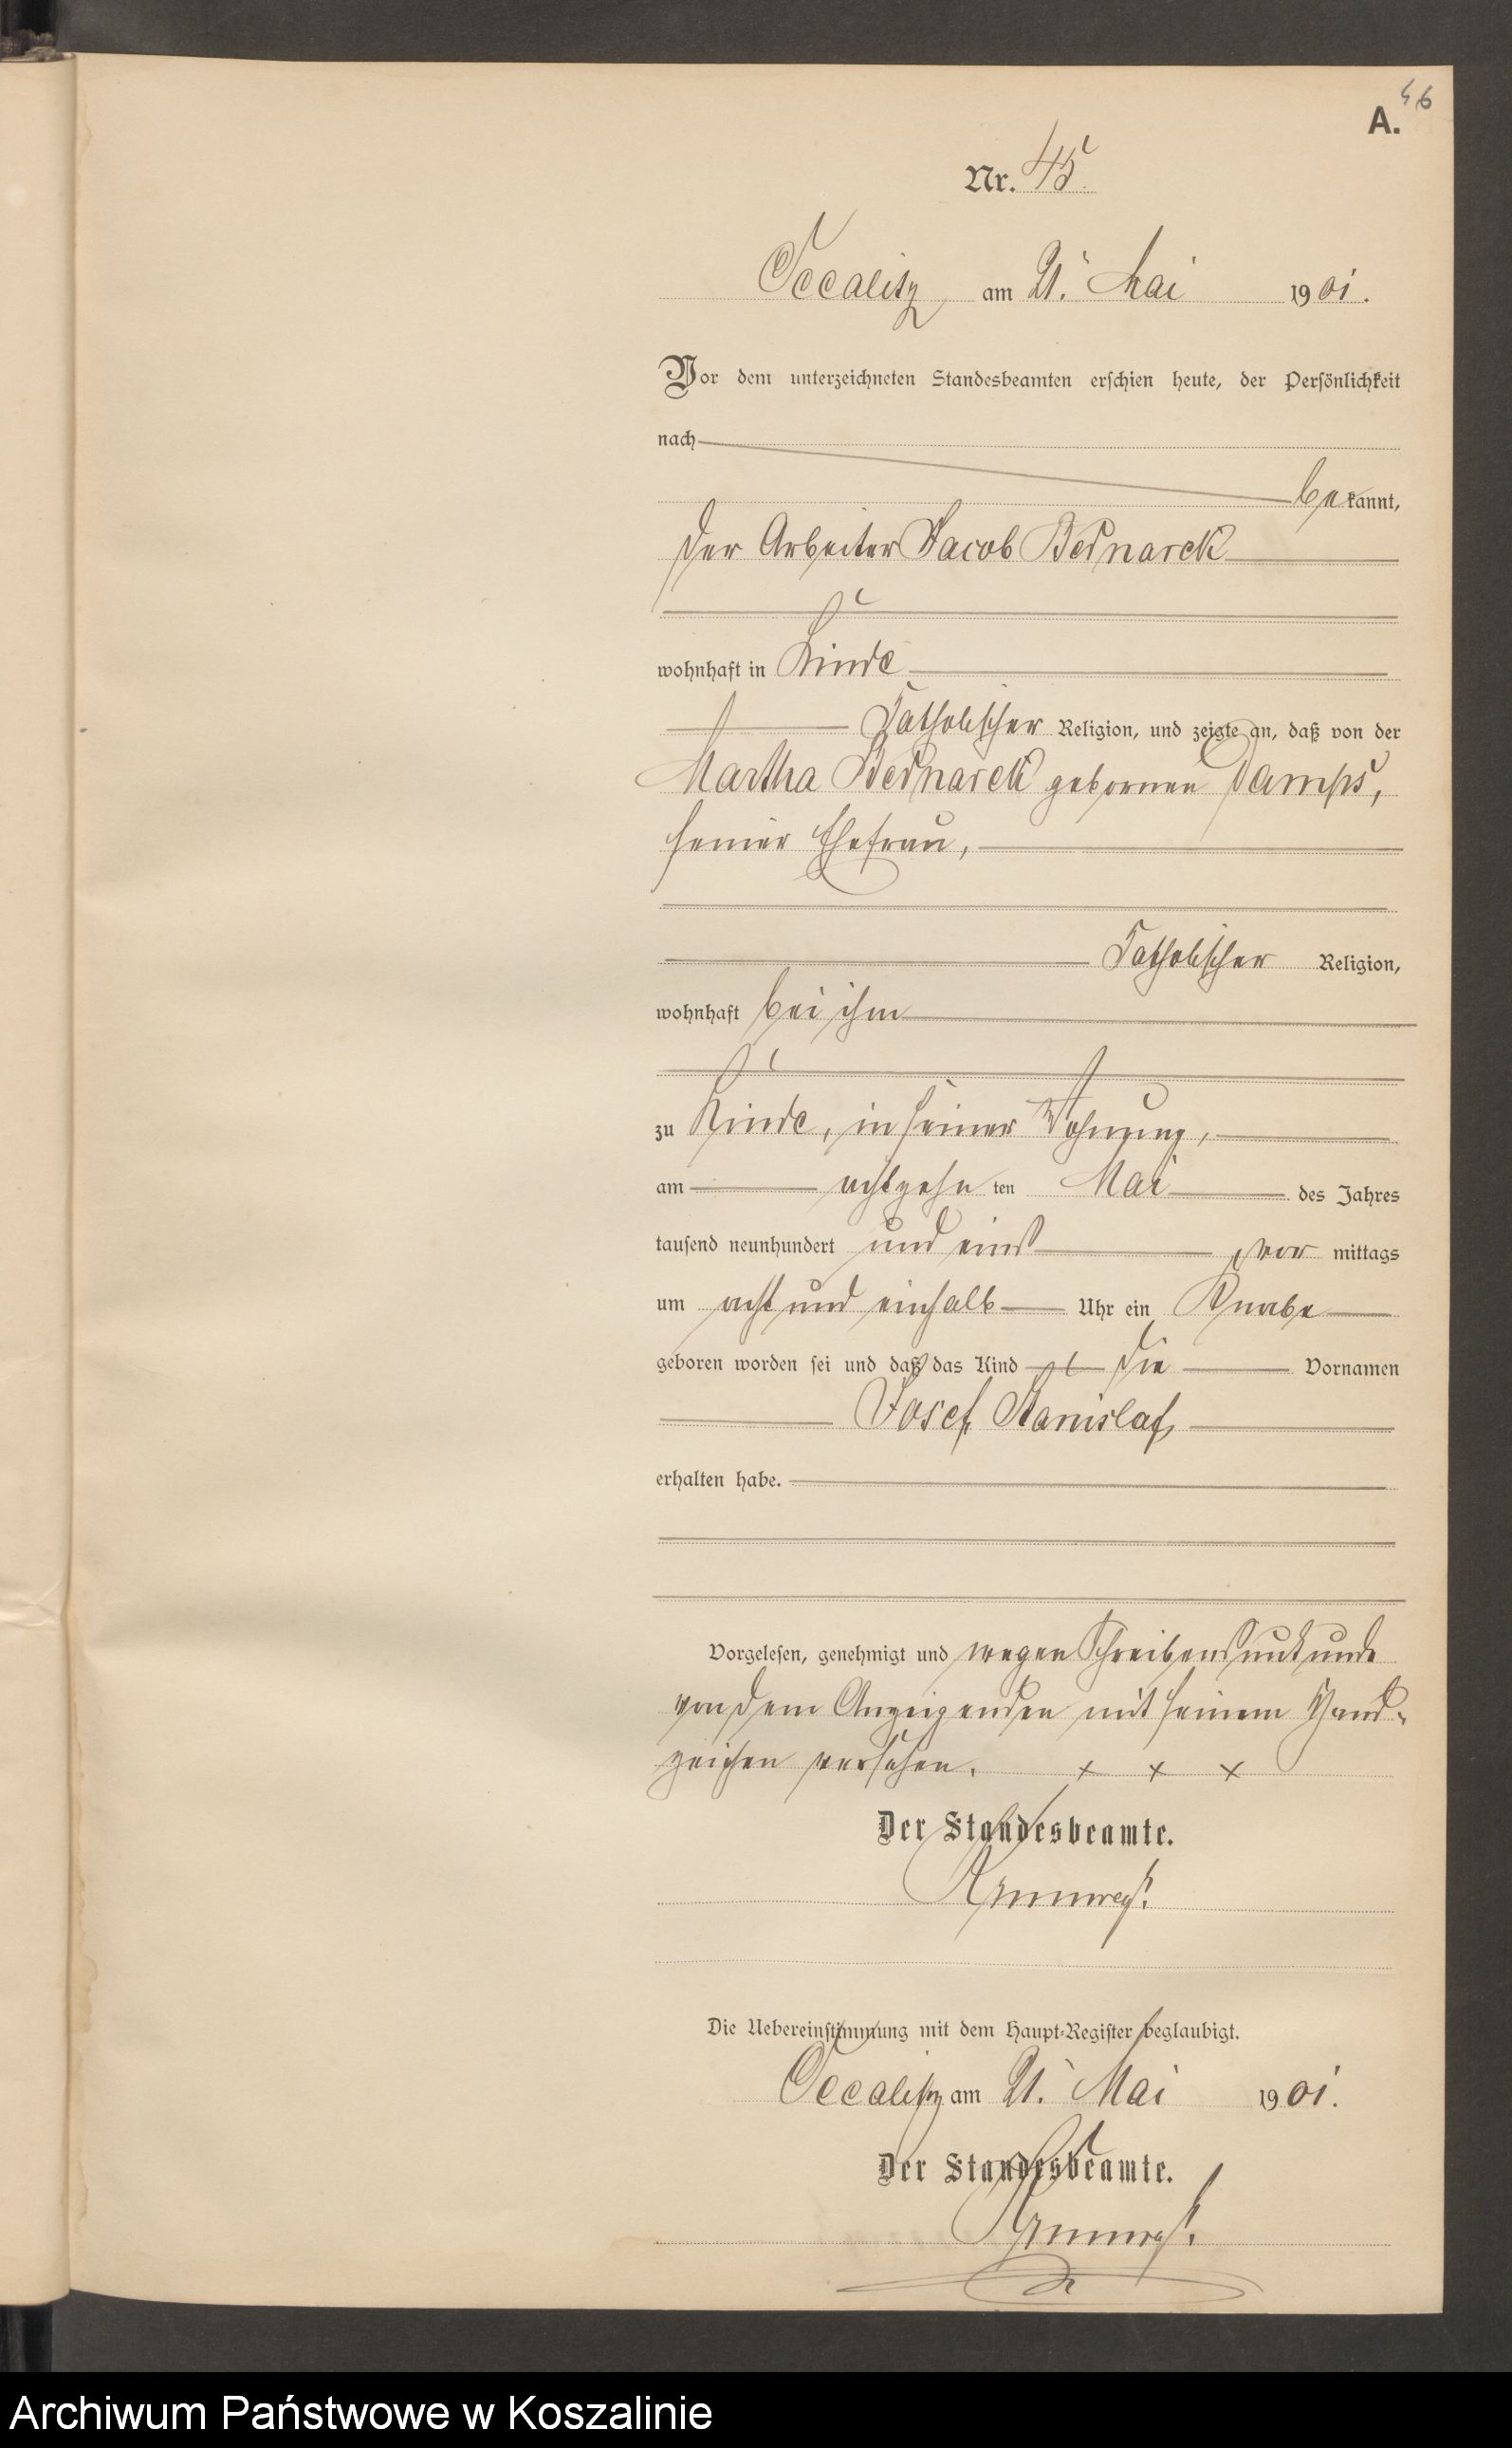 46
A.
Nr. 45.
Occalitz am 21. Mai 1901.
Vor dem unterzeichneten Standesbeamten erschien heute, der Persönlichkeit
nach
bekannt,
der Arbeiter Jacob Bednarek
wohnhaft in Linde
katholischer Religion, und zeigte an, daß von der
Martha Bednarek gebornen Damps,
seiner Ehefrau,
katholischer Religion,
wohnhaft bei ihm
zu Linde, in seiner Wohnung,
am achtzehn ten Mai des Jahres
tausend neunhundert und eins vor mittags
um acht und einhalb Uhr ein Knabe
geboren worden sei und daß das Kind die Vornamen
Josef Stanislaf
erhalten habe.
Vorgelesen, genehmigt und wegen Schreibensunkunde
von dem Anzeigenden mit seinem Hand-
zeichen versehen. × × ×
Der Standesbeamte.
Die Uebereinstimmung mit dem Haupt-Register beglaubigt.
Occalitz am 21. Mai 1901.
Der Standesbeamte.
Archiwum Państwowe w Koszalinie